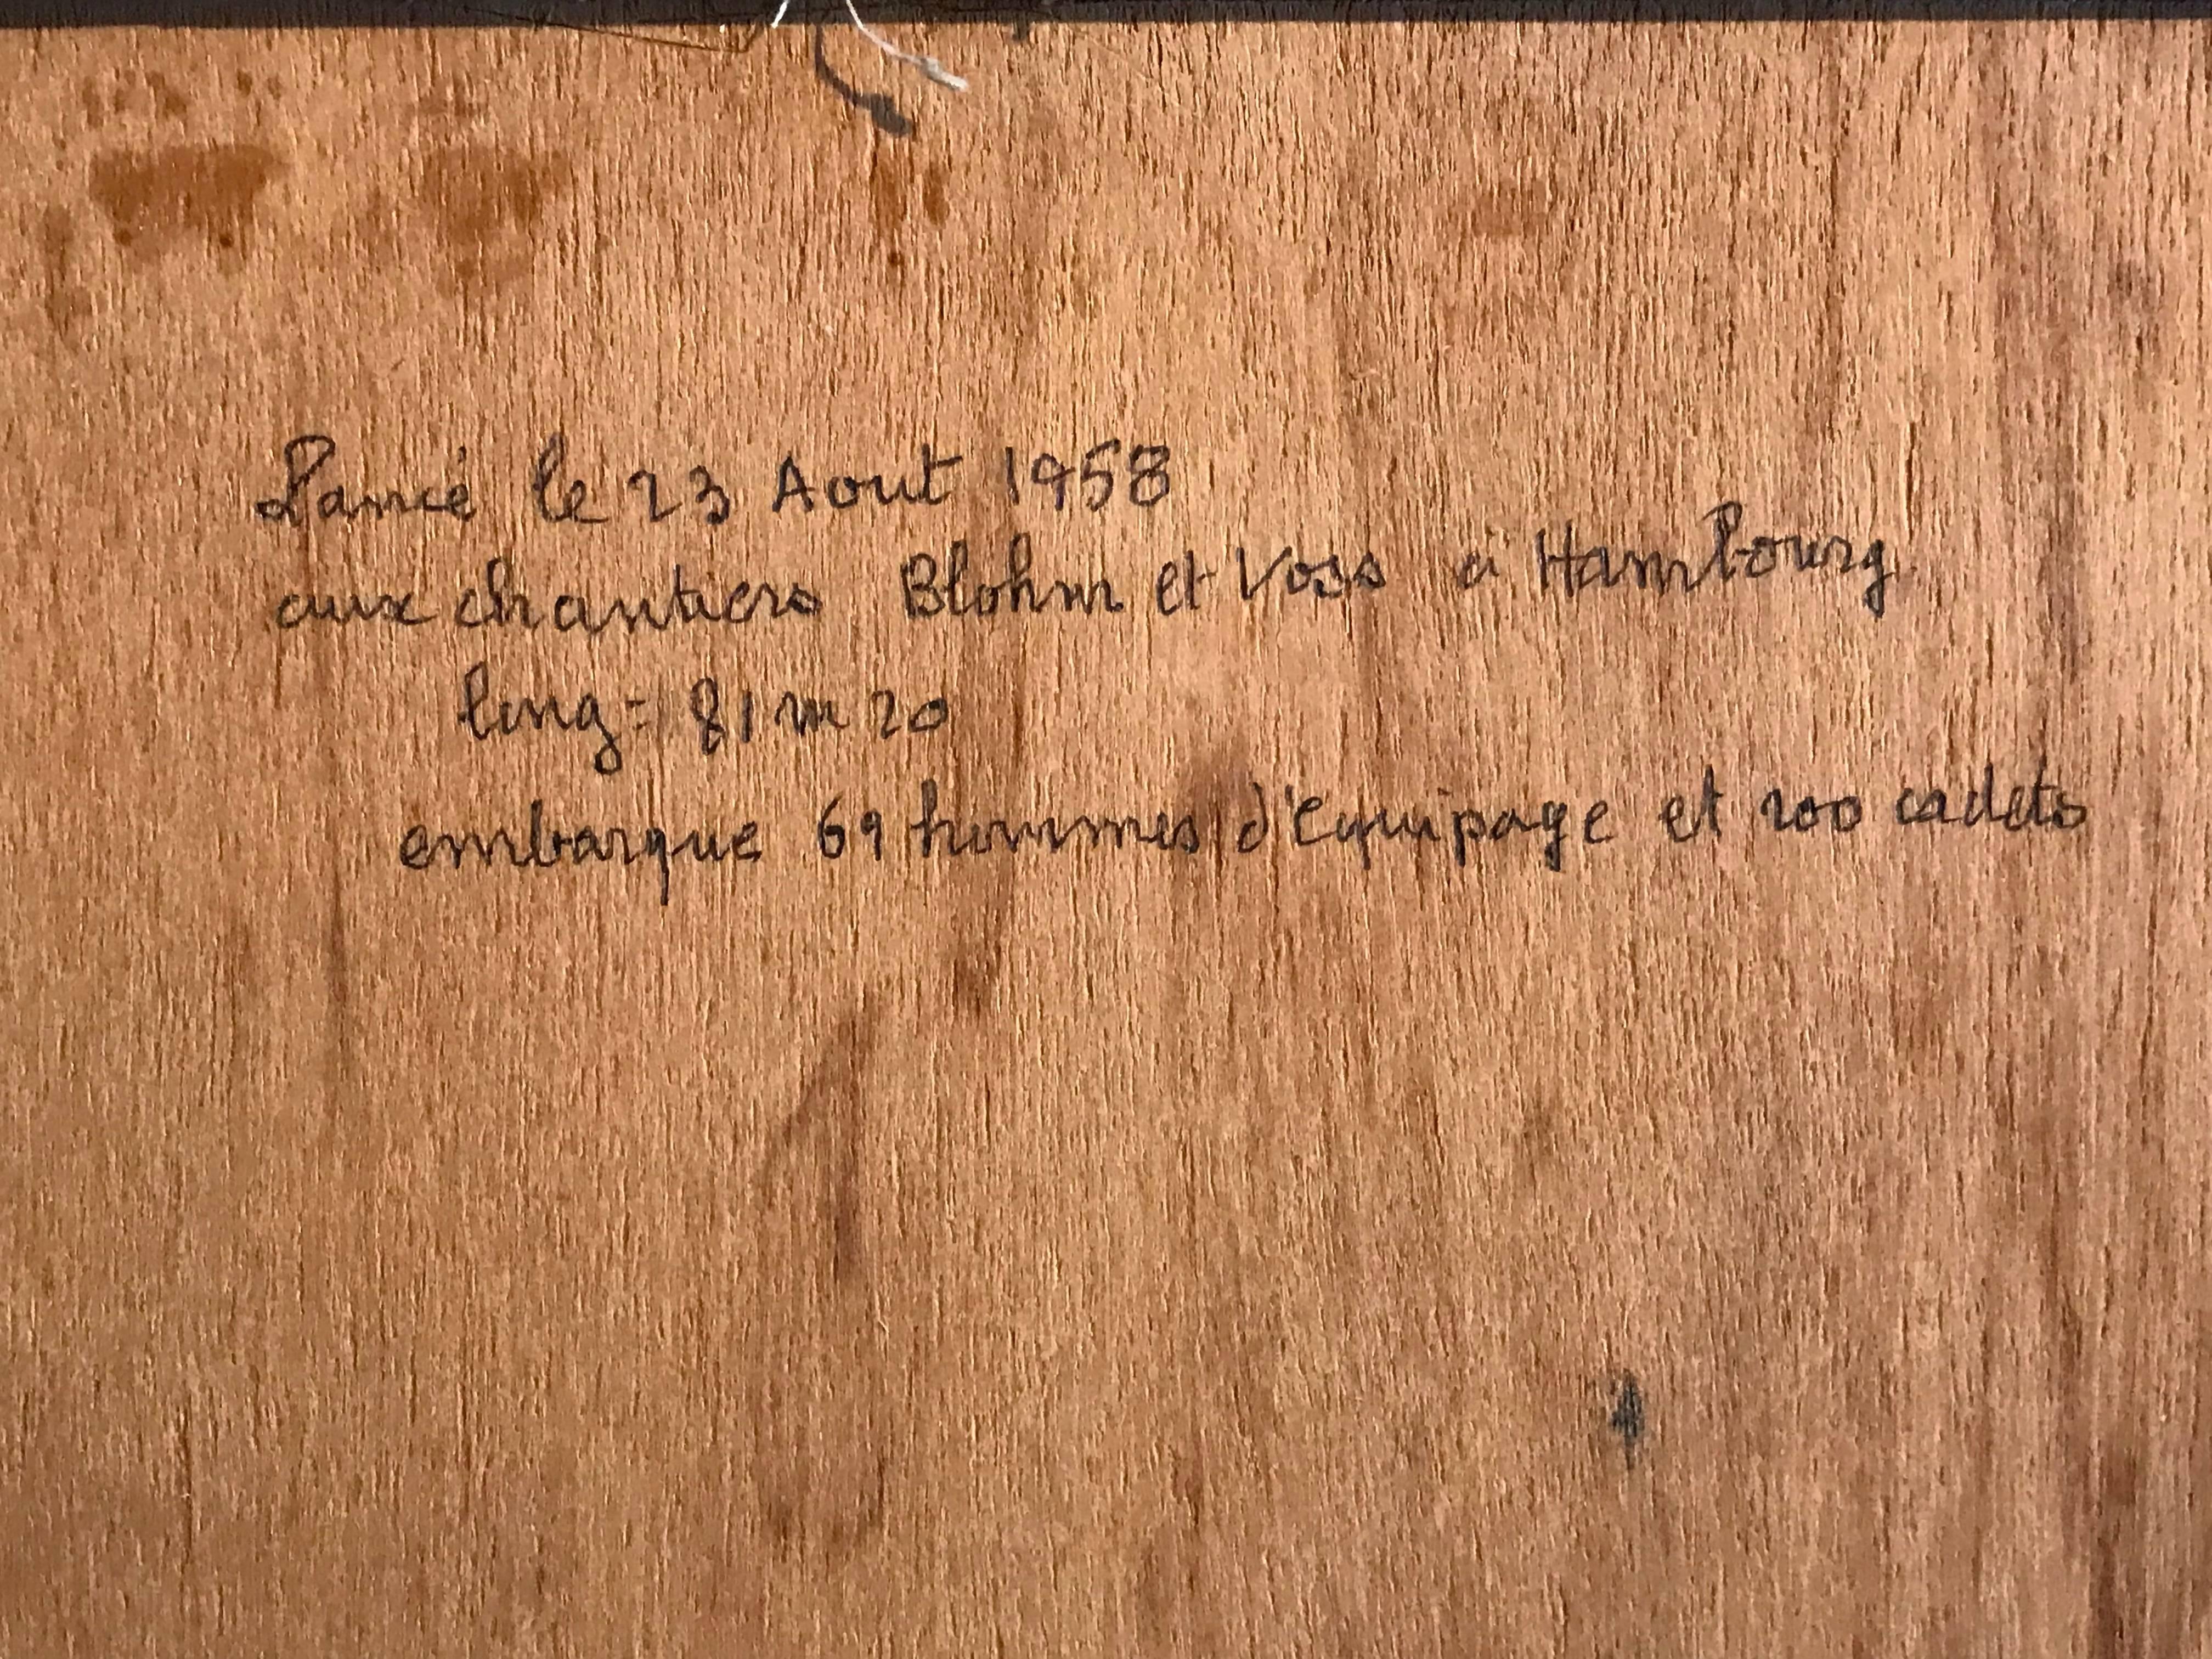 Lancé le 23 Aout 1958
aux chantiers Blohm et Voss à Hambourg
long = 81 m 20
embarque 69 hommes d'équipage et 200 cadets